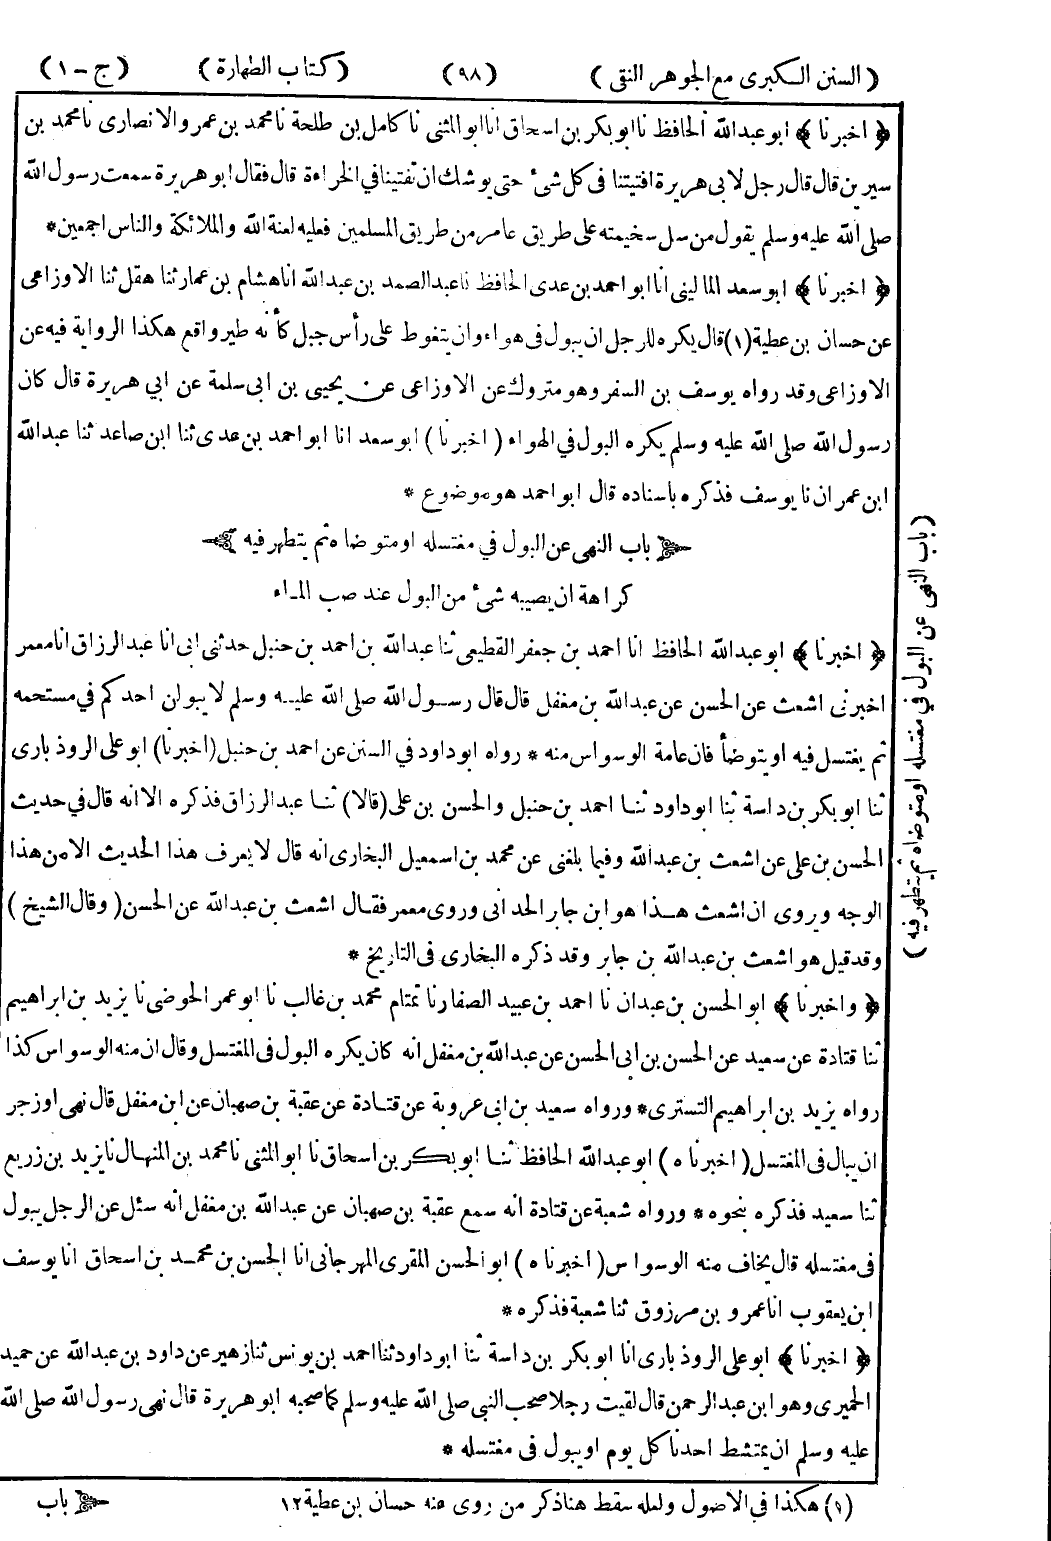 (السنن الكبرى مع الجوهر النقى) (٩٨) (كتاب الطهارة) (ج-١)
﴿ اخبرنا ﴾ ابو عبد الله الحافظ نا ابو بكر بن اسحاق انا ابو المثنى نا كامل بن طلحة نا محمد بن عمرو الانصارى نا محمد بن
سيرين قال قال رجل لابى هريرة افتيتنا فى كل شئ حتى يوشك ان تفتينا في الخراءة قال فقال ابو هريرة سمعت رسول الله
صلى الله عليه وسلم يقول من سل سخيمته على طريق عامر من طريق المسلمين فعليه لعنة الله والملائكة والناس اجمعين *
﴿ اخبرنا ﴾ ابو سعد المالينى انا ابو احمد بن عدى الحافظ نا عبد الصمد بن عبد الله انا هشام بن عمار ثنا هقل ثنا الاوزاعى
عن حسان بن عطية (١) قال يكره للرجل ان يبول فى هواء وان يتغوط على رأس جبل كأنه طير واقع هكذا الرواية فيه عن
الاوزاعى وقد رواه يوسف بن السفر وهو متروك عن الاوزاعى عن يحيى بن ابى سلمة عن ابي هريرة قال كان
رسول الله صلى الله عليه وسلم يكره البول في الهواء (اخبرنا) ابو سعد انا ابو احمد بن عدى ثنا ابن صاعد ثنا عبد الله
ابن عمران نا يوسف فذكره باسناده قال ابو احمد هو موضوع *
باب النهى عن البول في مغتسله او متوضاه ثم يتطهر فيه
كراهة ان يصيبه شئ من البول عند صب الماء
﴿ اخبرنا ﴾ ابو عبد الله الحافظ انا احمد بن جعفر القطيعى ثنا عبد الله بن احمد بن حنبل حدثنى ابى انا عبد الرزاق انا معمر
اخبرنى اشعث عن الحسن عن عبد الله بن مغفل قال قال رسول الله صلى الله عليه وسلم لا يبولن احدكم في مستحمه
ثم يغتسل فيه او يتوضأ فان عامة الوسواس منه * رواه ابو داود في السنن عن احمد بن حنبل (اخبرنا) ابو على الروذبارى
ثنا ابو بكر بن داسة ثنا ابو داود ثنا احمد بن حنبل والحسن بن على (قالا) ثنا عبد الرزاق فذكره الا انه قال في حديث
الحسن بن على عن اشعث بن عبد الله وفيما بلغنى عن محمد بن اسمعيل البخارى انه قال لا يعرف هذا الحديث الا من هذا
الوجه ويروى ان اشعث هذا هو ابن جابر الحدانى وروى معمر فقال اشعث بن عبد الله عن الحسن (وقال الشيخ)
وقد قيل هو اشعث بن عبد الله بن جابر وقد ذكره البخارى فى التاريخ *
﴿ واخبرنا ﴾ ابو الحسن بن عبدان نا احمد بن عبيد الصفار نا تمتام محمد بن غالب نا ابو عمر الحوضى نا يزيد بن ابراهيم
ثنا قتادة عن سعيد عن الحسن بن ابى الحسن عن عبد الله بن مغفل انه كان يكره البول فى المغتسل وقال ان منه الوسواس كذا
رواه يزيد بن ابراهيم التسترى * ورواه سعيد بن ابى عروبة عن قتادة عن عقبة بن صهبان عن ابن مغفل قال نهى او زجر
ان يبال فى المغتسل (اخبرناه) ابو عبد الله الحافظ ثنا ابو بكر بن اسحاق نا ابو المثنى نا محمد بن المنهال نا يزيد بن زريع
ثنا سعيد فذكره بنحوه * ورواه شعبة عن قتادة انه سمع عقبة بن صهبان عن عبد الله بن مغفل انه سئل عن الرجل يبول
فى مغتسله قال يخاف منه الوسواس (اخبرناه) ابو الحسن المقرى المهرجانى انا الحسن بن محمد بن اسحاق انا يوسف
ابن يعقوب انا عمرو بن مرزوق ثنا شعبة فذكره *
﴿ اخبرنا ﴾ ابو على الروذبارى انا ابو بكر بن داسة ثنا ابو داود ثنا احمد بن يونس ثنا زهير عن داود بن عبد الله عن حميد
الحميرى وهو ابن عبد الرحمن قال لقيت رجلا صحب النبي صلى الله عليه وسلم كما صحبه ابو هريرة قال نهى رسول الله صلى الله
عليه وسلم ان يمتشط احدنا كل يوم او يبول فى مغتسله *
(١) هكذا في الاصول ولعله سقط هنا ذكر من روى عنه حسان بن عطية ١٢
باب
(باب النهى عن البول في مغتسله او متوضاه ثم يتطهر فيه)